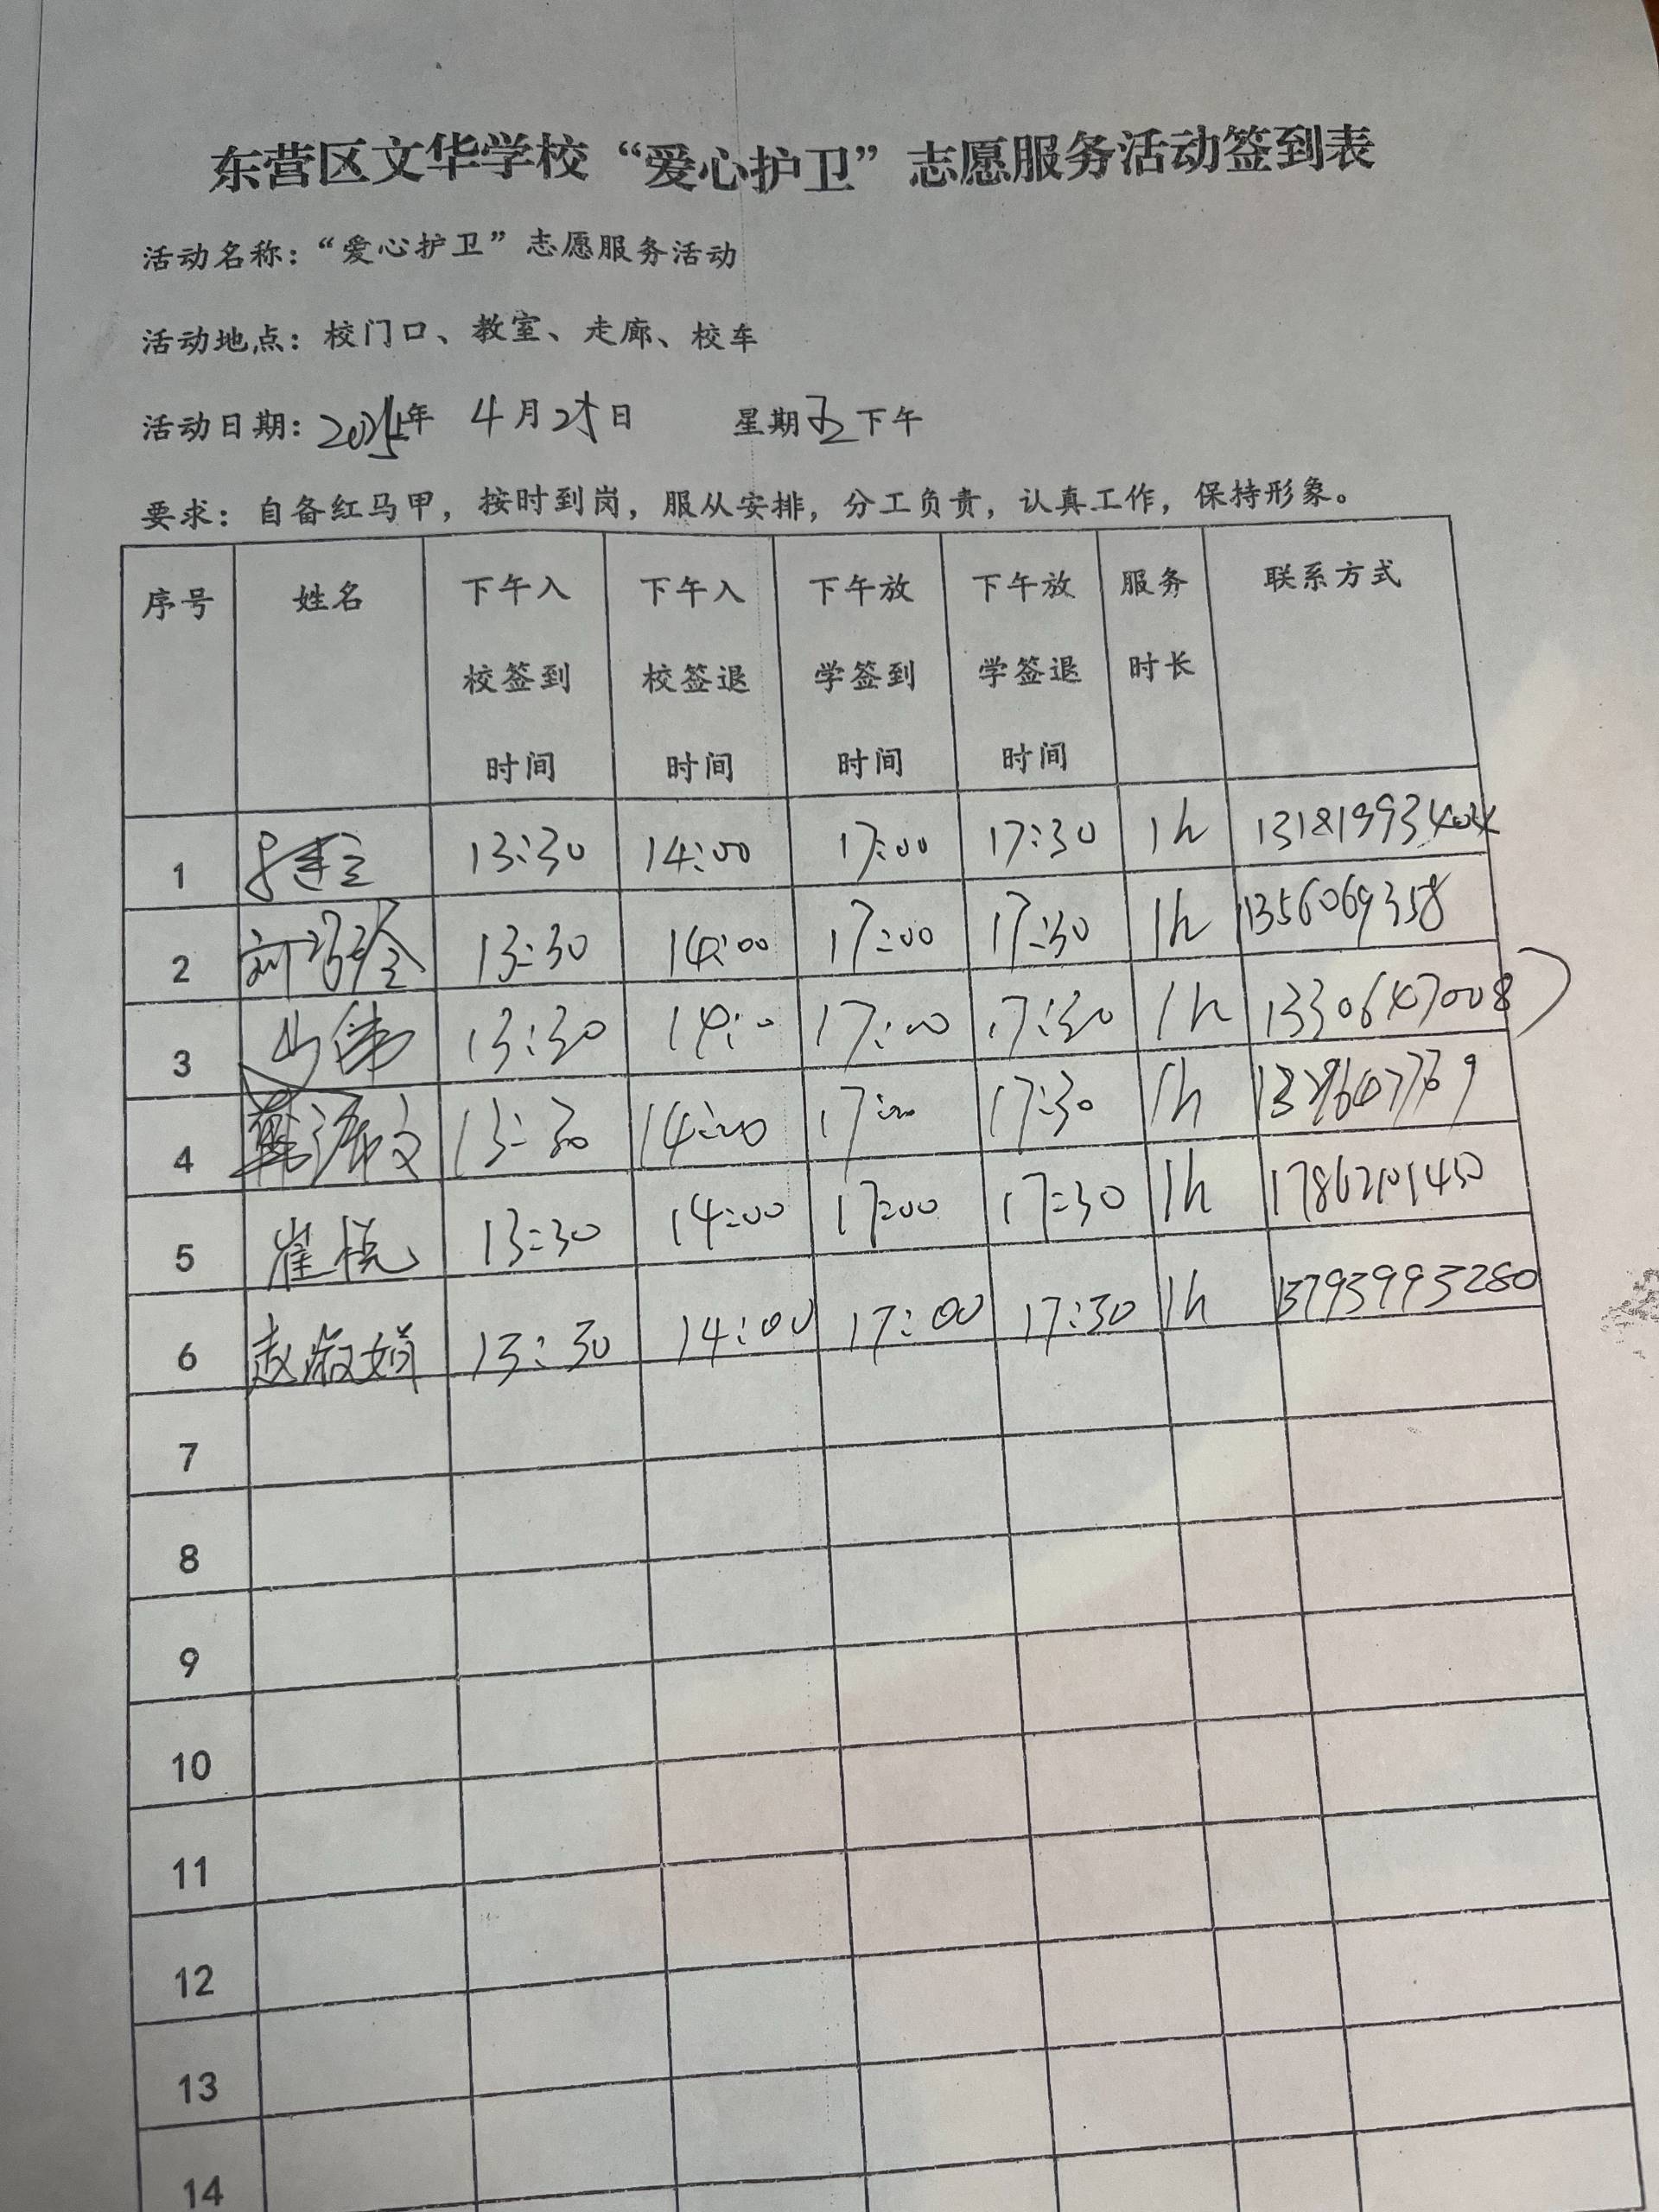 东营区文华学校“爱心护卫”志愿服务活动签到表
活动名称：“爱心护卫”志愿服务活动
活动地点：校门口、教室、走廊、校车
活动日期：2025年 4月25日 星期五下午
要求：自备红马甲，按时到岗，服从安排，分工负责，认真工作，保持形象。
序号 姓名 下午入校签到时间 下午入校签退时间 下午放学签到时间 下午放学签退时间 服务时长 联系方式
1 13:30 14:00 17:00 17:30 1h
2 13:30 14:00 17:00 17:30 1h 1356069358
3 山伟 13:30 14:00 17:00 17:30 1h 1330647008
4 13:30 14:00 17:00 17:30 1h
5 崔悦 13:30 14:00 17:00 17:30 1h
6 赵淑娟 13:30 14:00 17:00 17:30 1h 13793993280
7
8
9
10
11
12
13
14